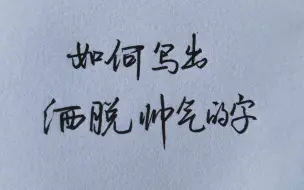 如何写出
洒脱帅气的字